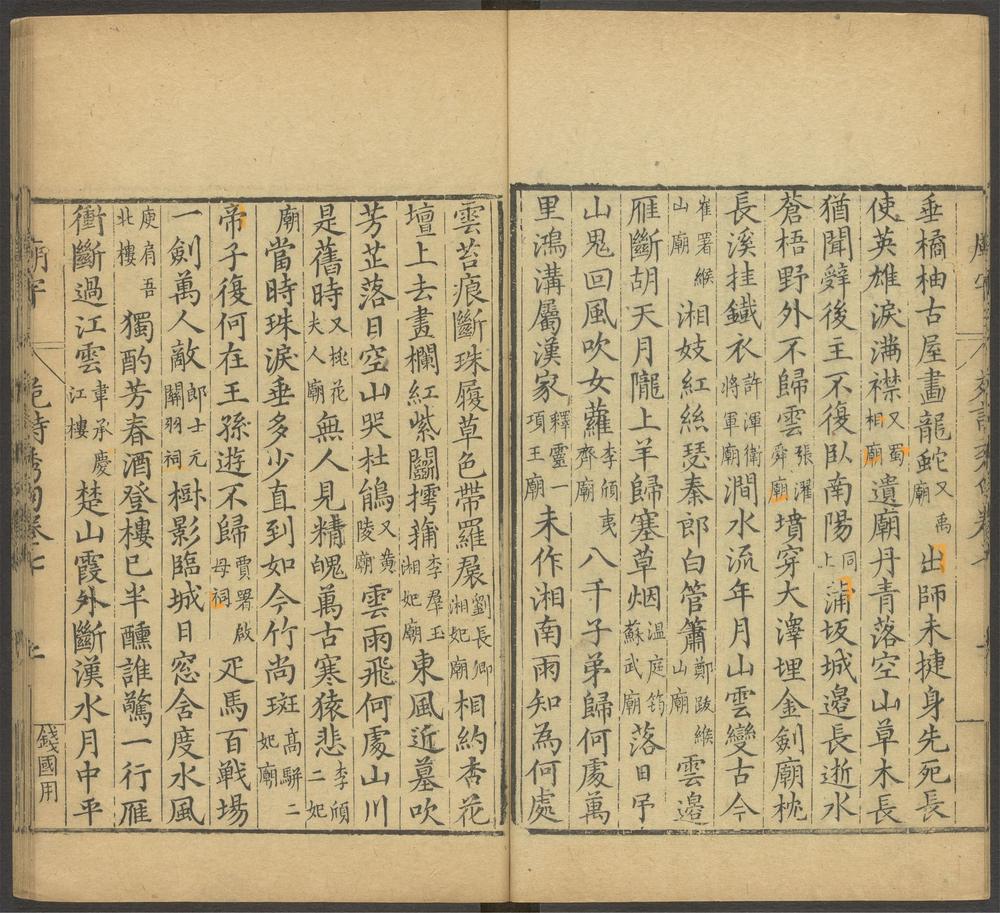 垂橘柚古屋畫龍蛇又禹廟出師未捷身先死長
使英雄淚滿襟又蜀相廟遺廟丹青落空山草木長
猶聞辤後主不復臥南陽同上蒲坂城邊長逝水
蒼梧野外不歸雲張濯舜廟墳穿大澤埋金劍廟枕
長溪挂鐵衣許渾衛將軍廟澗水流年月山雲變古今
崔署緱山廟湘妓紅絲瑟秦郎白管簫鄭畋緱山廟雲邊
雁斷胡天月隴上羊歸塞草烟溫庭筠蘇武廟落日吊
山鬼回風吹女蘿李頎夷齊廟八千子弟歸何處萬
里鴻溝屬漢家釋靈一項王廟未作湘南雨知為何處
雲苔痕斷珠履草色帶羅裠劉長卿湘妃廟相約杏花
壇上去畫欄紅紫鬭摴蒱李群玉湘妃廟東風近墓吹
芳芷落日空山哭杜鵑又黃陵廟雲雨飛何處山川
是舊時又桃花夫人廟無人見精魄萬古寒猿悲李頎二妃
廟當時珠淚垂多少直到如今竹尚斑高駢二妃廟
帝子復何在王孫遊不歸賈署啟母祠疋馬百戰場
一劍萬人敵郎士元關羽祠樹影臨城日窓含度水風
庾肩吾北樓獨酌芳春酒登樓已半醺誰驚一行雁
衝斷過江雲韋承慶江樓楚山霞外斷漢水月中平
錢國用